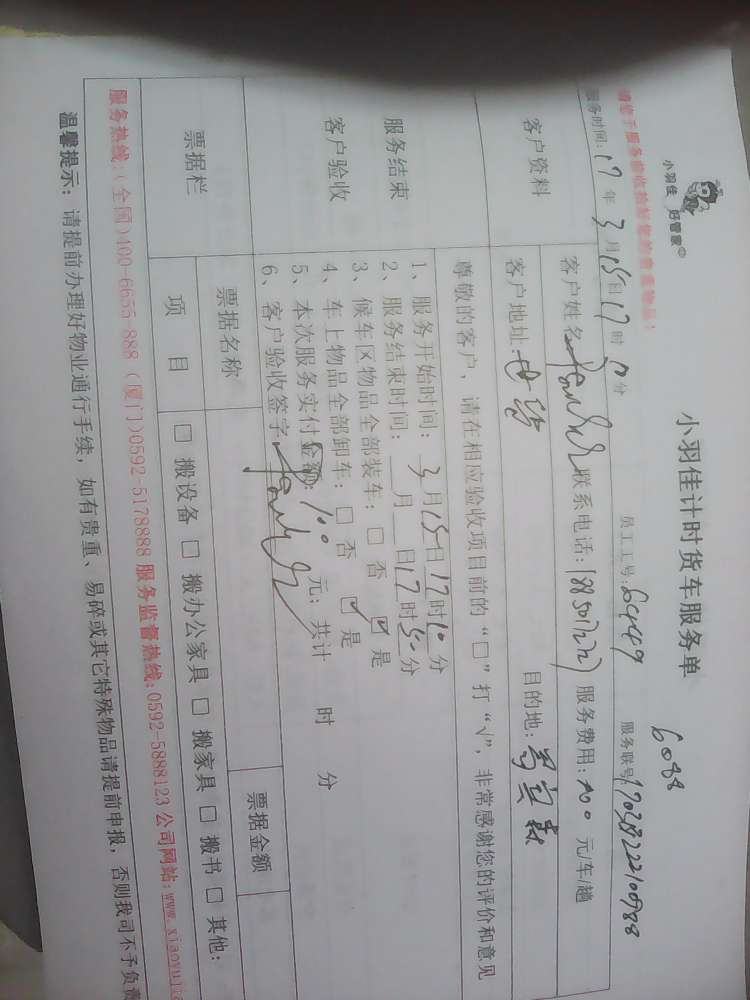 小羽佳 好管家
小羽佳计时货车服务单
6088
请您于服务前收拾好您的贵重物品!
服务时间:17年3月15日17时 分 员工工号:6449 服务联号:
客户资料
客户姓名 联系电话: 服务费用:100元/车/趟
客户地址: 目的地:
服务结束
客户验收
尊敬的客户, 请在相应验收项目前的“□”打“√”, 非常感谢您的评价和意见
1、服务开始时间: 3月15日17时10分
2、服务结束时间: 月 日17时50分
3、候车区物品全部装车: □ 否 ☑ 是
4、车上物品全部卸车: □ 否 ☑ 是
5、本次服务实付金额: 100 元; 共计 时 分
6、客户验收签字
票据栏
票据名称 票据金额
项 目 □ 搬设备 □ 搬办公家具 □ 搬家具 □ 搬书 □ 其他:
服务热线:(全国)400-6655-888 (厦门)0592-5178888 服务监督热线:0592-5888123 公司网站:www.xiaoyujia
温馨提示: 请提前办理好物业通行手续, 如有贵重、易碎或其它特殊物品请提前申报, 否则我司不予负责